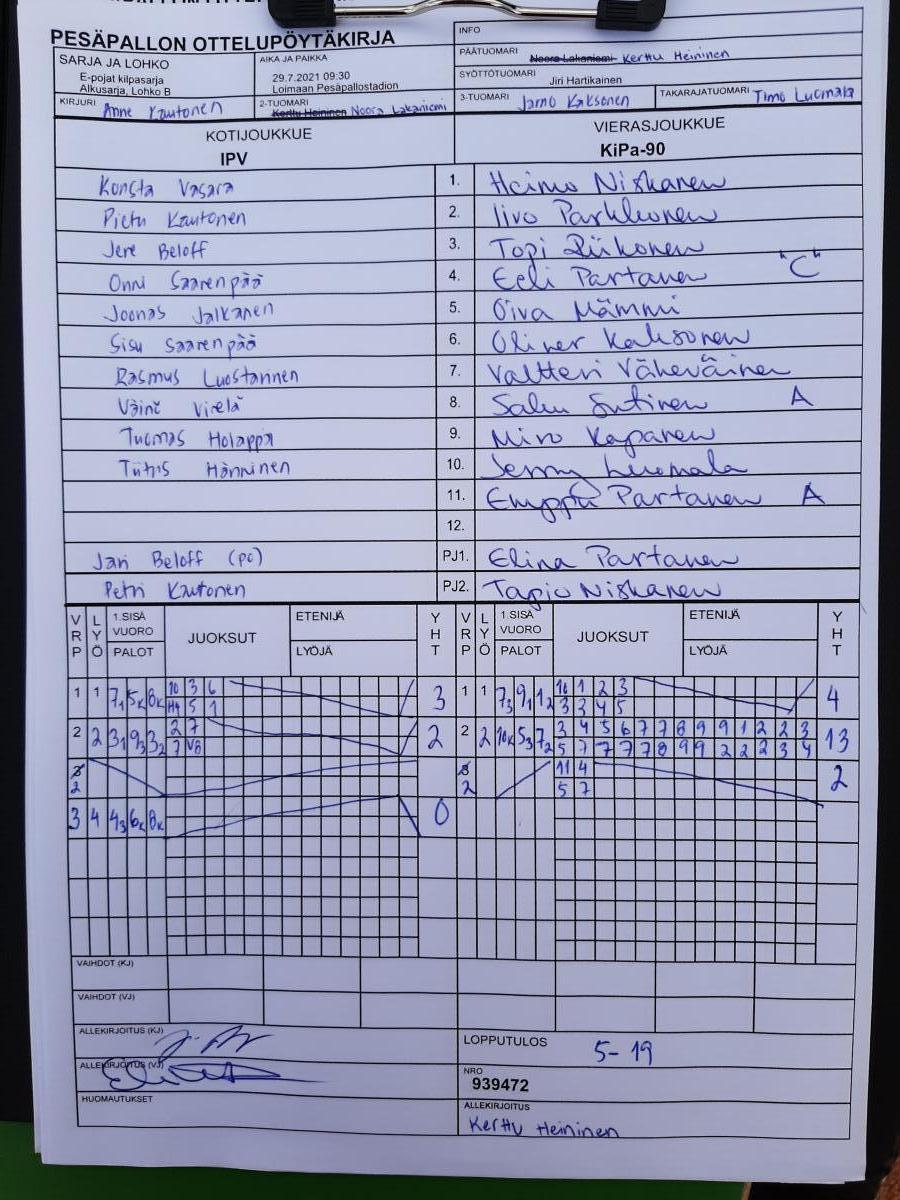 PESÄPALLON OTTELUPÖYTÄKIRJA
INFO
SARJA JA LOHKO
E-pojat kilpasarja
Alkusarja, Lohko B
AIKA JA PAIKKA
29.7.2021 09:30
Loimaan Pesäpallostadion
PÄÄTUOMARI Noora Lakaniemi Kerttu Heininen
SYÖTTÖTUOMARI Jiri Hartikainen
KIRJURI Anne Kautonen
2-TUOMARI Kerttu Heininen Noora Lakaniemi
3-TUOMARI Jarno Kaksonen
TAKARAJATUOMARI Timo Luomala
KOTIJOUKKUE
IPV
VIERASJOUKKUE
KiPa-90
Konsta Vasara 1. Heimo Niskanen
Pietu Kautonen 2. Iivo Parkkonen
Jere Beloff 3. Topi Riikonen
Onni Saarenpää 4. Eeli Partanen "C"
Joonas Jalkanen 5. Oiva Mämmi
Sisu Saarenpää 6. Oliver Kaksonen
Rasmus Luostarinen 7. Valtteri Väheväinen
Väinö Virelä 8. Saku Sutinen A
Tuomas Holappa 9. Miro Kapanen
Hänninen 10. Jenny Luomala
11. Partanen A
12.
Jari Beloff (pc) PJ1. Elina Partanen
Petri Kautonen PJ2. Tapio Niskanen
VRP LYÖ 1.SISÄ VUORO PALOT JUOKSUT ETENIJÄ LYÖJÄ YHT VRP LYÖ 1.SISÄ VUORO PALOT JUOKSUT ETENIJÄ LYÖJÄ YHT
1 1 7₁ 5ₖ 8ₖ 10 3 6 3 1 1 7₃ 9₁ 1₂ 10 1 2 3 4
H4 5 1 3 3 4 5
2 2 3₁ 9₃ 3₂ 2 7 2 2 2 10ₖ 5₃ 7₂ 3 4 5 6 7 7 8 9 9 1 2 2 3 13
7 V8 5 7 7 7 7 8 9 9 2 2 2 3 4
3 3 11 4 2
2 2 5 7
3 4 4₃ 6ₖ 8ₖ 0
VAIHDOT (KJ)
VAIHDOT (VJ)
ALLEKIRJOITUS (KJ)
LOPPUTULOS 5-19
ALLEKIRJOITUS (VJ)
NRO
939472
HUOMAUTUKSET
ALLEKIRJOITUS
Kerttu Heininen